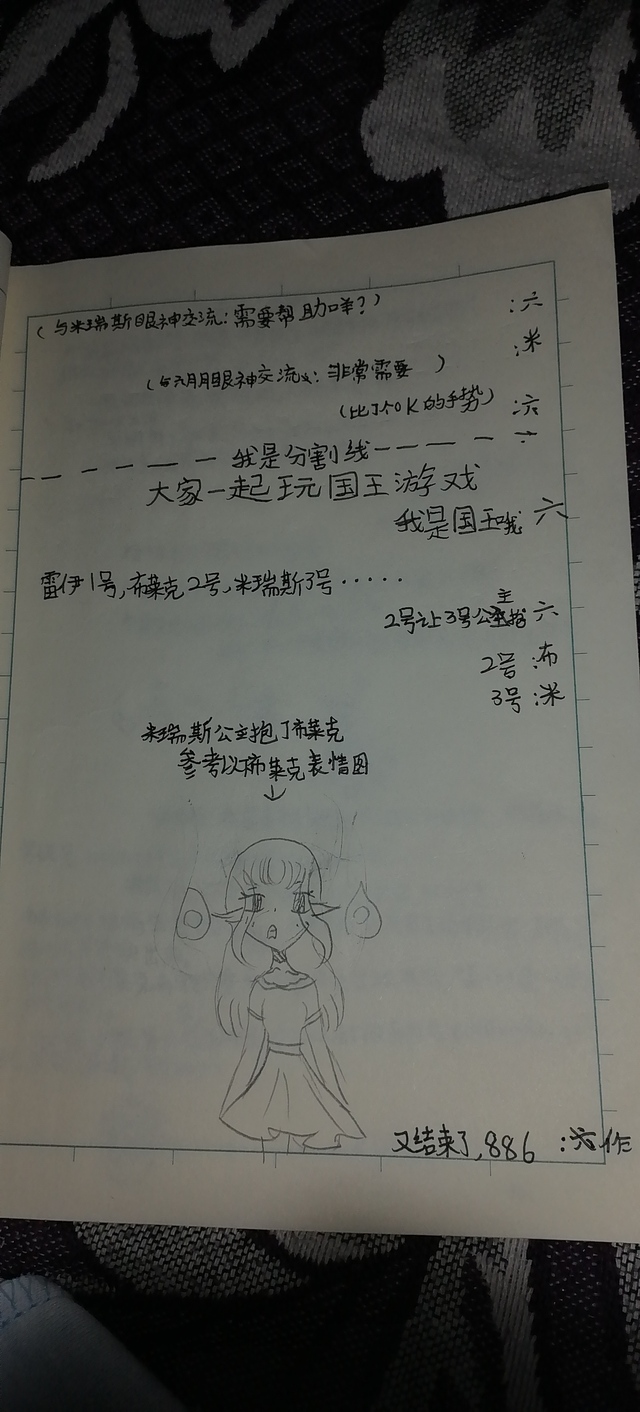 （与米瑞斯眼神交流：需要帮助咩？） ：六
：米
（与六月眼神交流：非常需要）
（比了个OK的手势） ：六
— — — — — — 我是分割线 — — — — — —
大家一起玩国王游戏
我是国王哦 六
雷伊1号，布莱克2号，米瑞斯3号······
2号让3号公主抱 六
2号 ：布
3号 ：米
米瑞斯公主抱了布莱克
参考以下布莱克表情图
↓
又结束了，886 ：六作